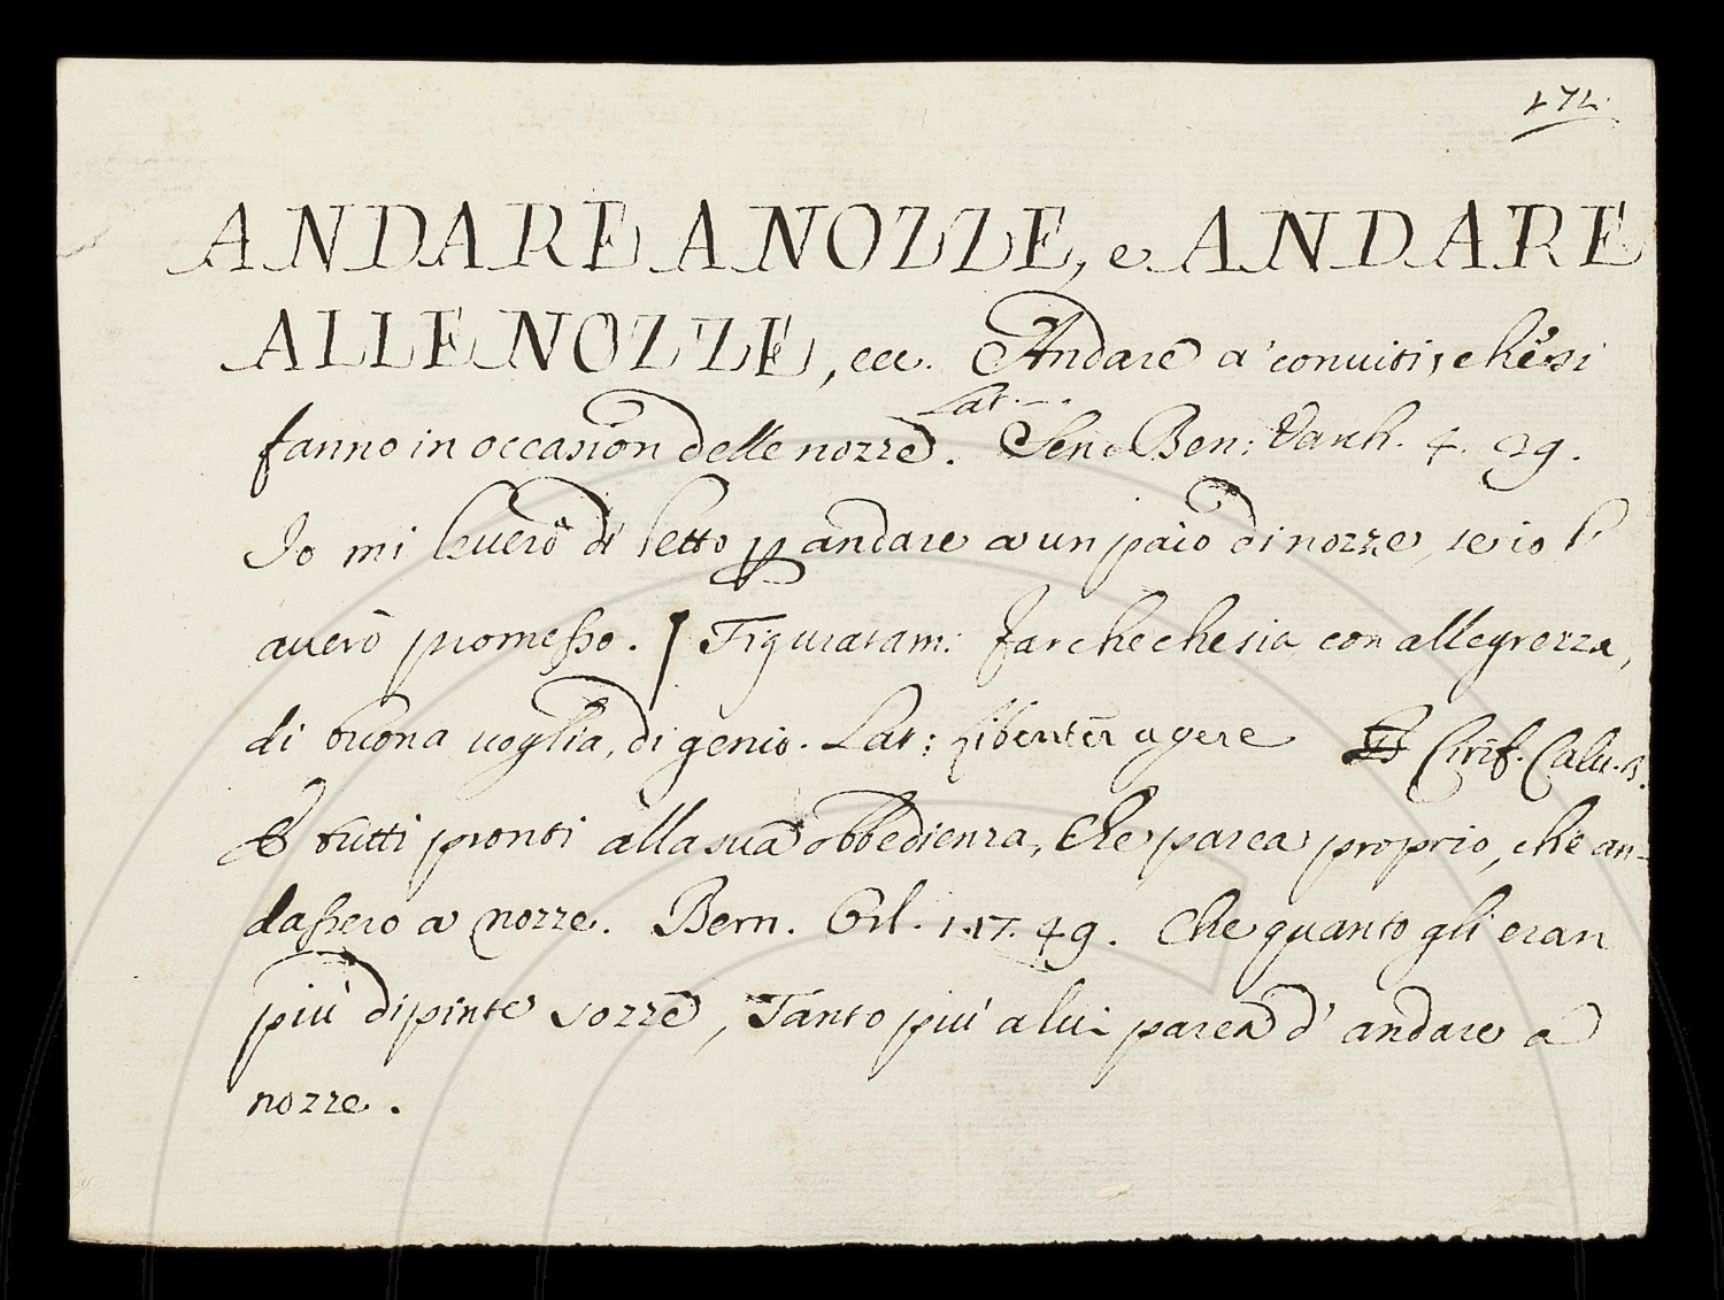 172.
ANDARE A NOZZE, e ANDARE
ALLE NOZZE, ecc. Andare a' conviti, che si
Lat. --.
fanno in occasion delle nozze. Sen: Ben: Varch. 4. 39.
Io mi leverò di letto p andare a un paio di nozze, se io l'
averò promesso. Figuratam: far che che sia con allegrezza,
di buona voglia, di genio. Lat: Libenter agere Cirif. Calv.
E tutti pronti alla sua obbedienza, Che parea proprio, che an-
dassero a nozze. Bern. Orl. 1. 17. 49. Che quanto gli eran
più dipinte sozze, Tanto più a lui parea d' andare a
nozze.